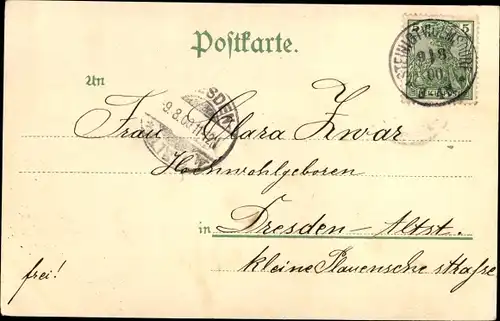 Postkarte.
5
STEINIGTWOLMSDORF
9/8
00
An
DRESDEN
9.8.00
ALTST.
Frau Clara Zwar
Hochwohlgeboren
in Dresden-Altst.
kleine Plauensche straße
frei!